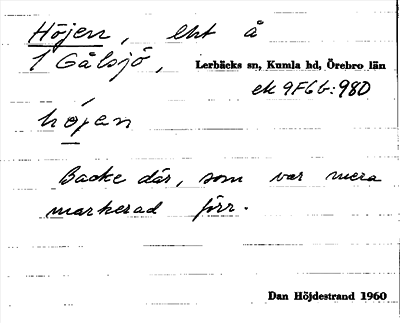 Höjen, ekt å
1 Gålsjö, Lerbäcks sn, Kumla hd, Örebro län
ek 9F6b:98D
höjen
Backe där, som var mera
markerad förr.
Dan Höjdestrand 1960